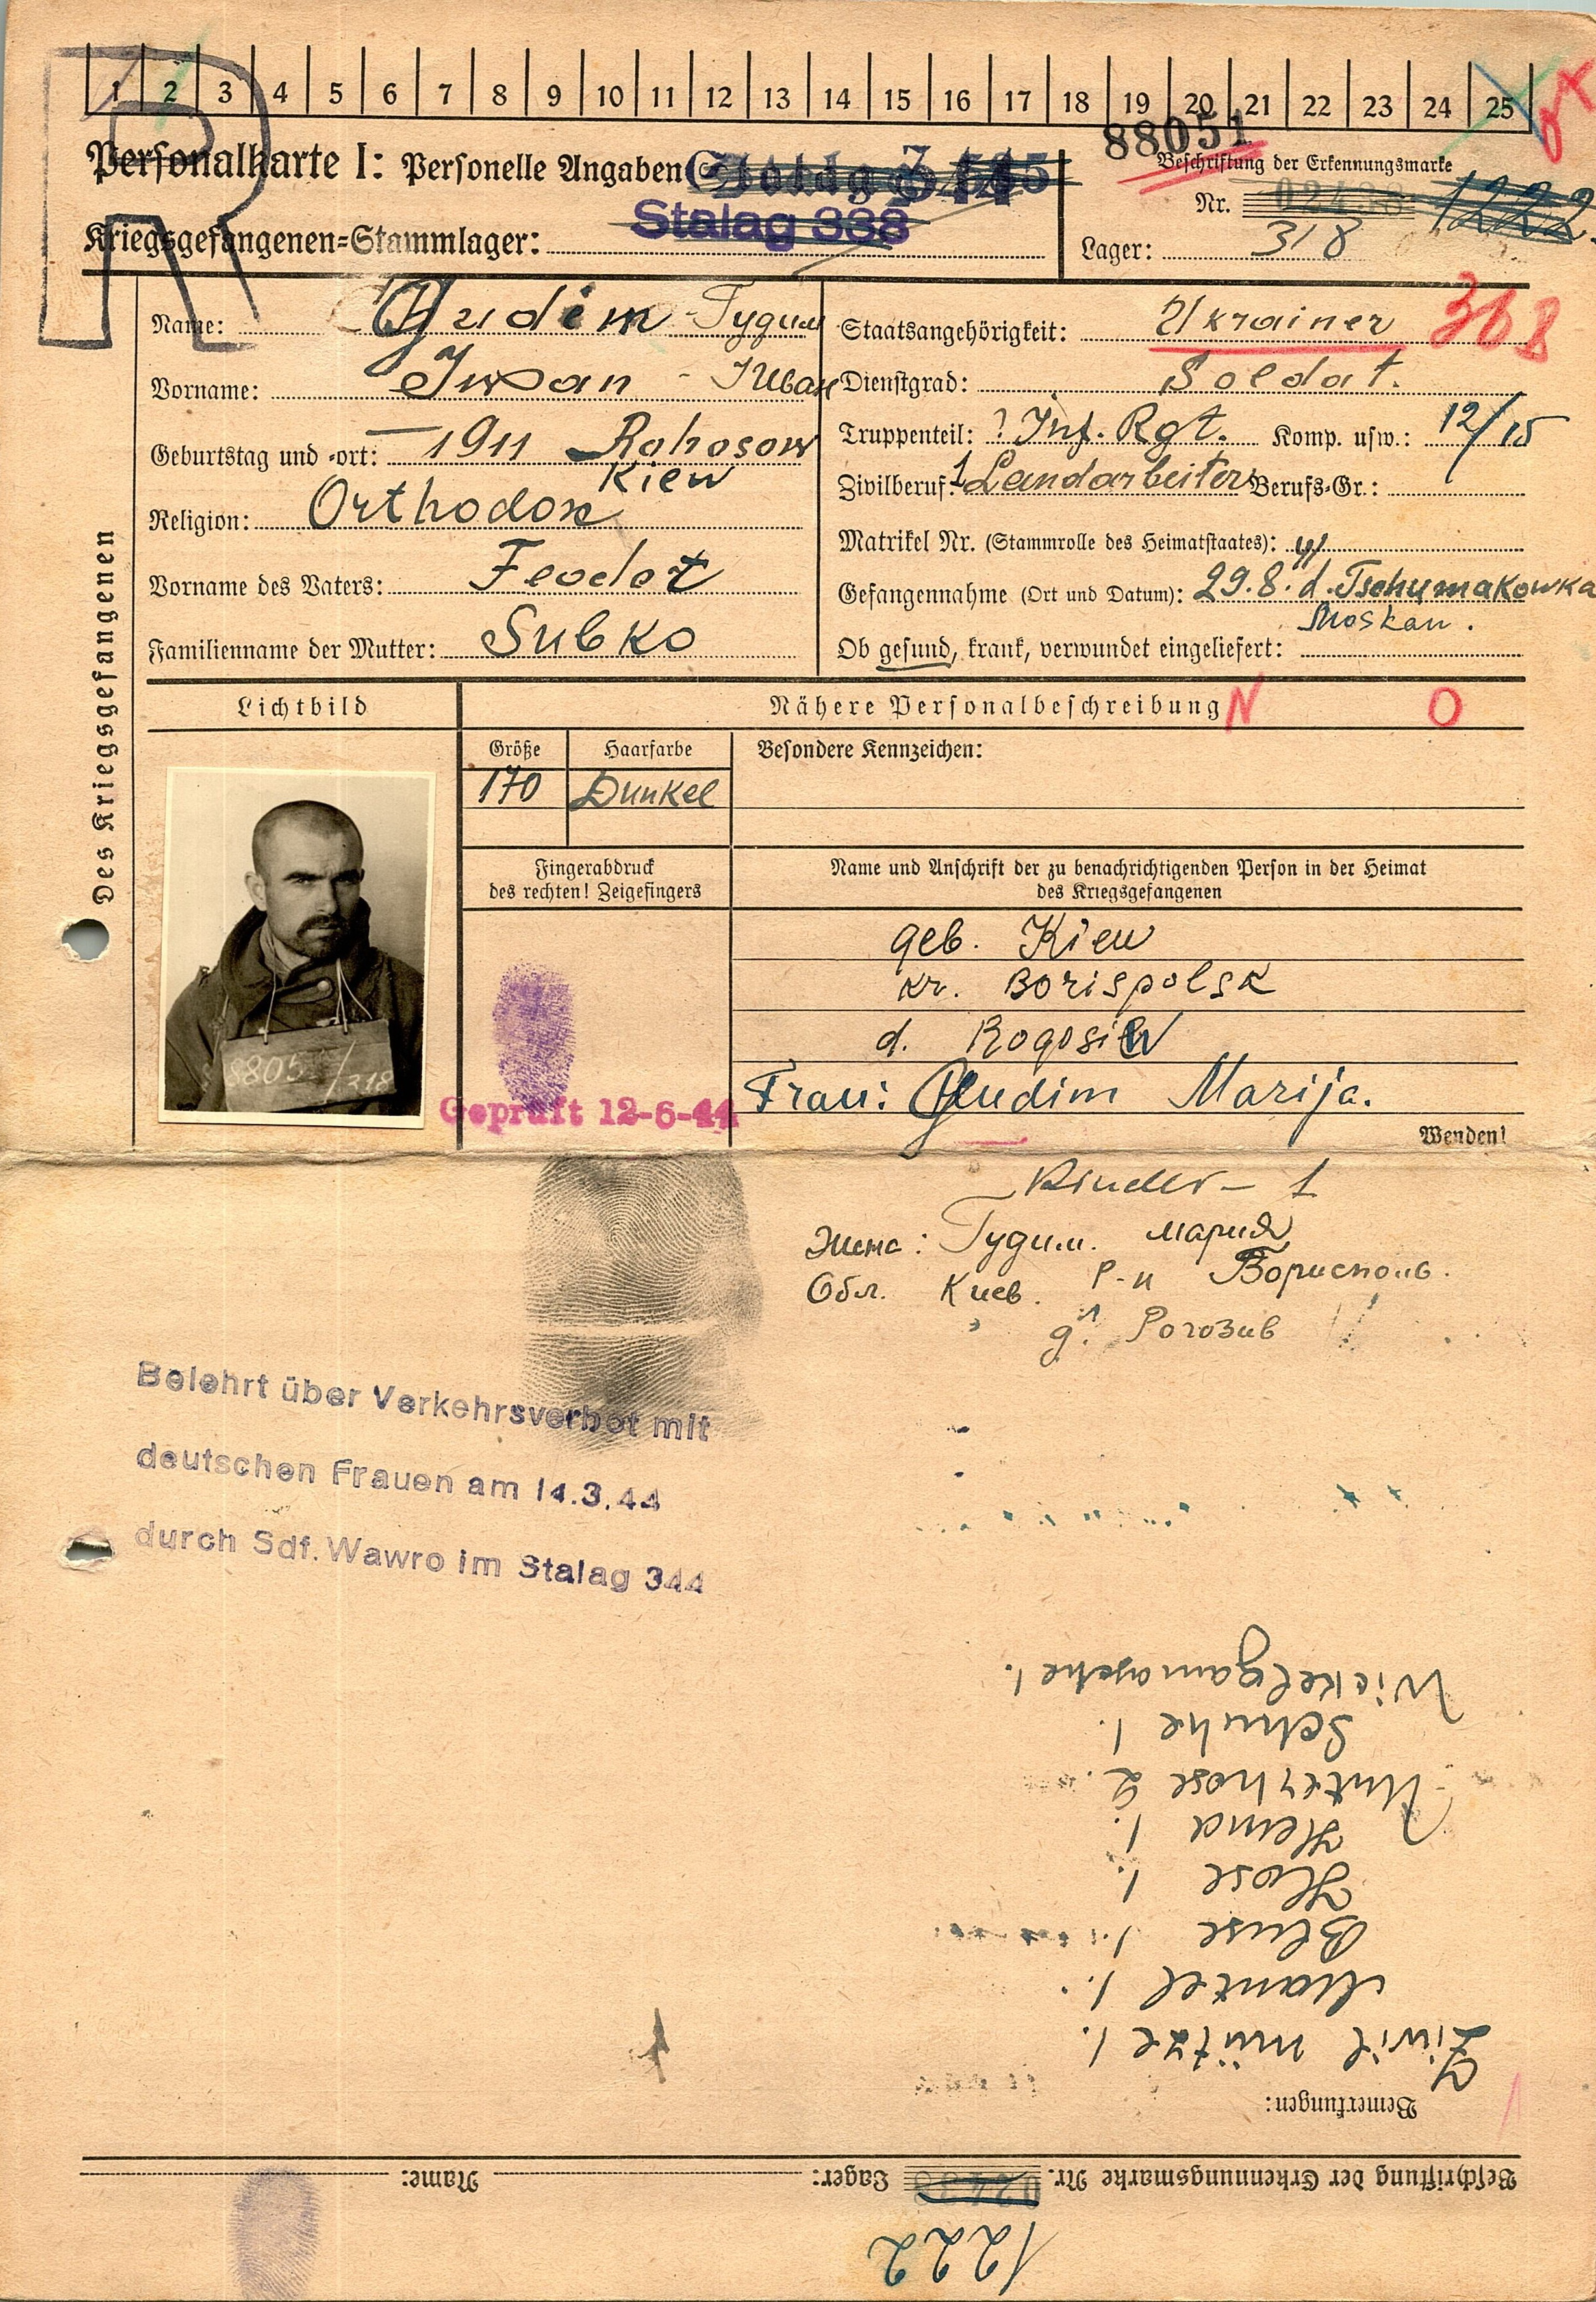 1 2 3 4 5 6 7 8 9 10 11 12 13 14 15 16 17 18 19 20 21 22 23 24 25
Personalkarte I: Personelle Angaben
88051
Beschriftung der Erkennungsmarke
Kriegsgefangenen=Stammlager: Stalag 338
Nr. 02438 1222
Lager: 318
R
Des Kriegsgefangenen
Name: Gudim - Гудим
Vorname: Iwan - Иван
Geburtstag und =ort: 1911 Rohosow
Kiew
Religion: Orthodox
Vorname des Vaters: Feodot
Familienname der Mutter: Subko
Staatsangehörigkeit: Ukrainer
Dienstgrad: Soldat.
Truppenteil: ? Inf. Rgt. Komp. usw.: 12/15
Zivilberuf: Landarbeiter Berufs=Gr.:
Matrikel Nr. (Stammrolle des Heimatstaates):
Gefangennahme (Ort und Datum): 29.8. 41 d. Tschumakowka
Moskau.
Ob gesund, krank, verwundet eingeliefert:
Lichtbild
Nähere Personalbeschreibung N O
Größe Haarfarbe Besondere Kennzeichen:
170 Dunkel
Fingerabdruck
des rechten! Zeigefingers
Name und Anschrift der zu benachrichtigenden Person in der Heimat
des Kriegsgefangenen
geb. Kiew
kr. Borispolsk
d. Rogosiw
Frau: Gudim Marija.
8805 /318
Geprüft 12-6-44
Wenden!
Kinder - 1
Жена: Гудим. Мария
Обл. Киев. Р-н Борисполь.
д. Рогозив
Belehrt über Verkehrsverbot mit
deutschen Frauen am 14.3.44
durch Sdf. Wawro im Stalag 344
Beschriftung der Erkennungsmarke Nr. 02438 Lager: Name:
1222
Bemerkungen:
Zivil mütze 1.
Mantel 1.
Bluse 1.
Hose 1.
Hemd 1.
Unterhose 2.
Schuhe 1.
Wickelgamasche 1.